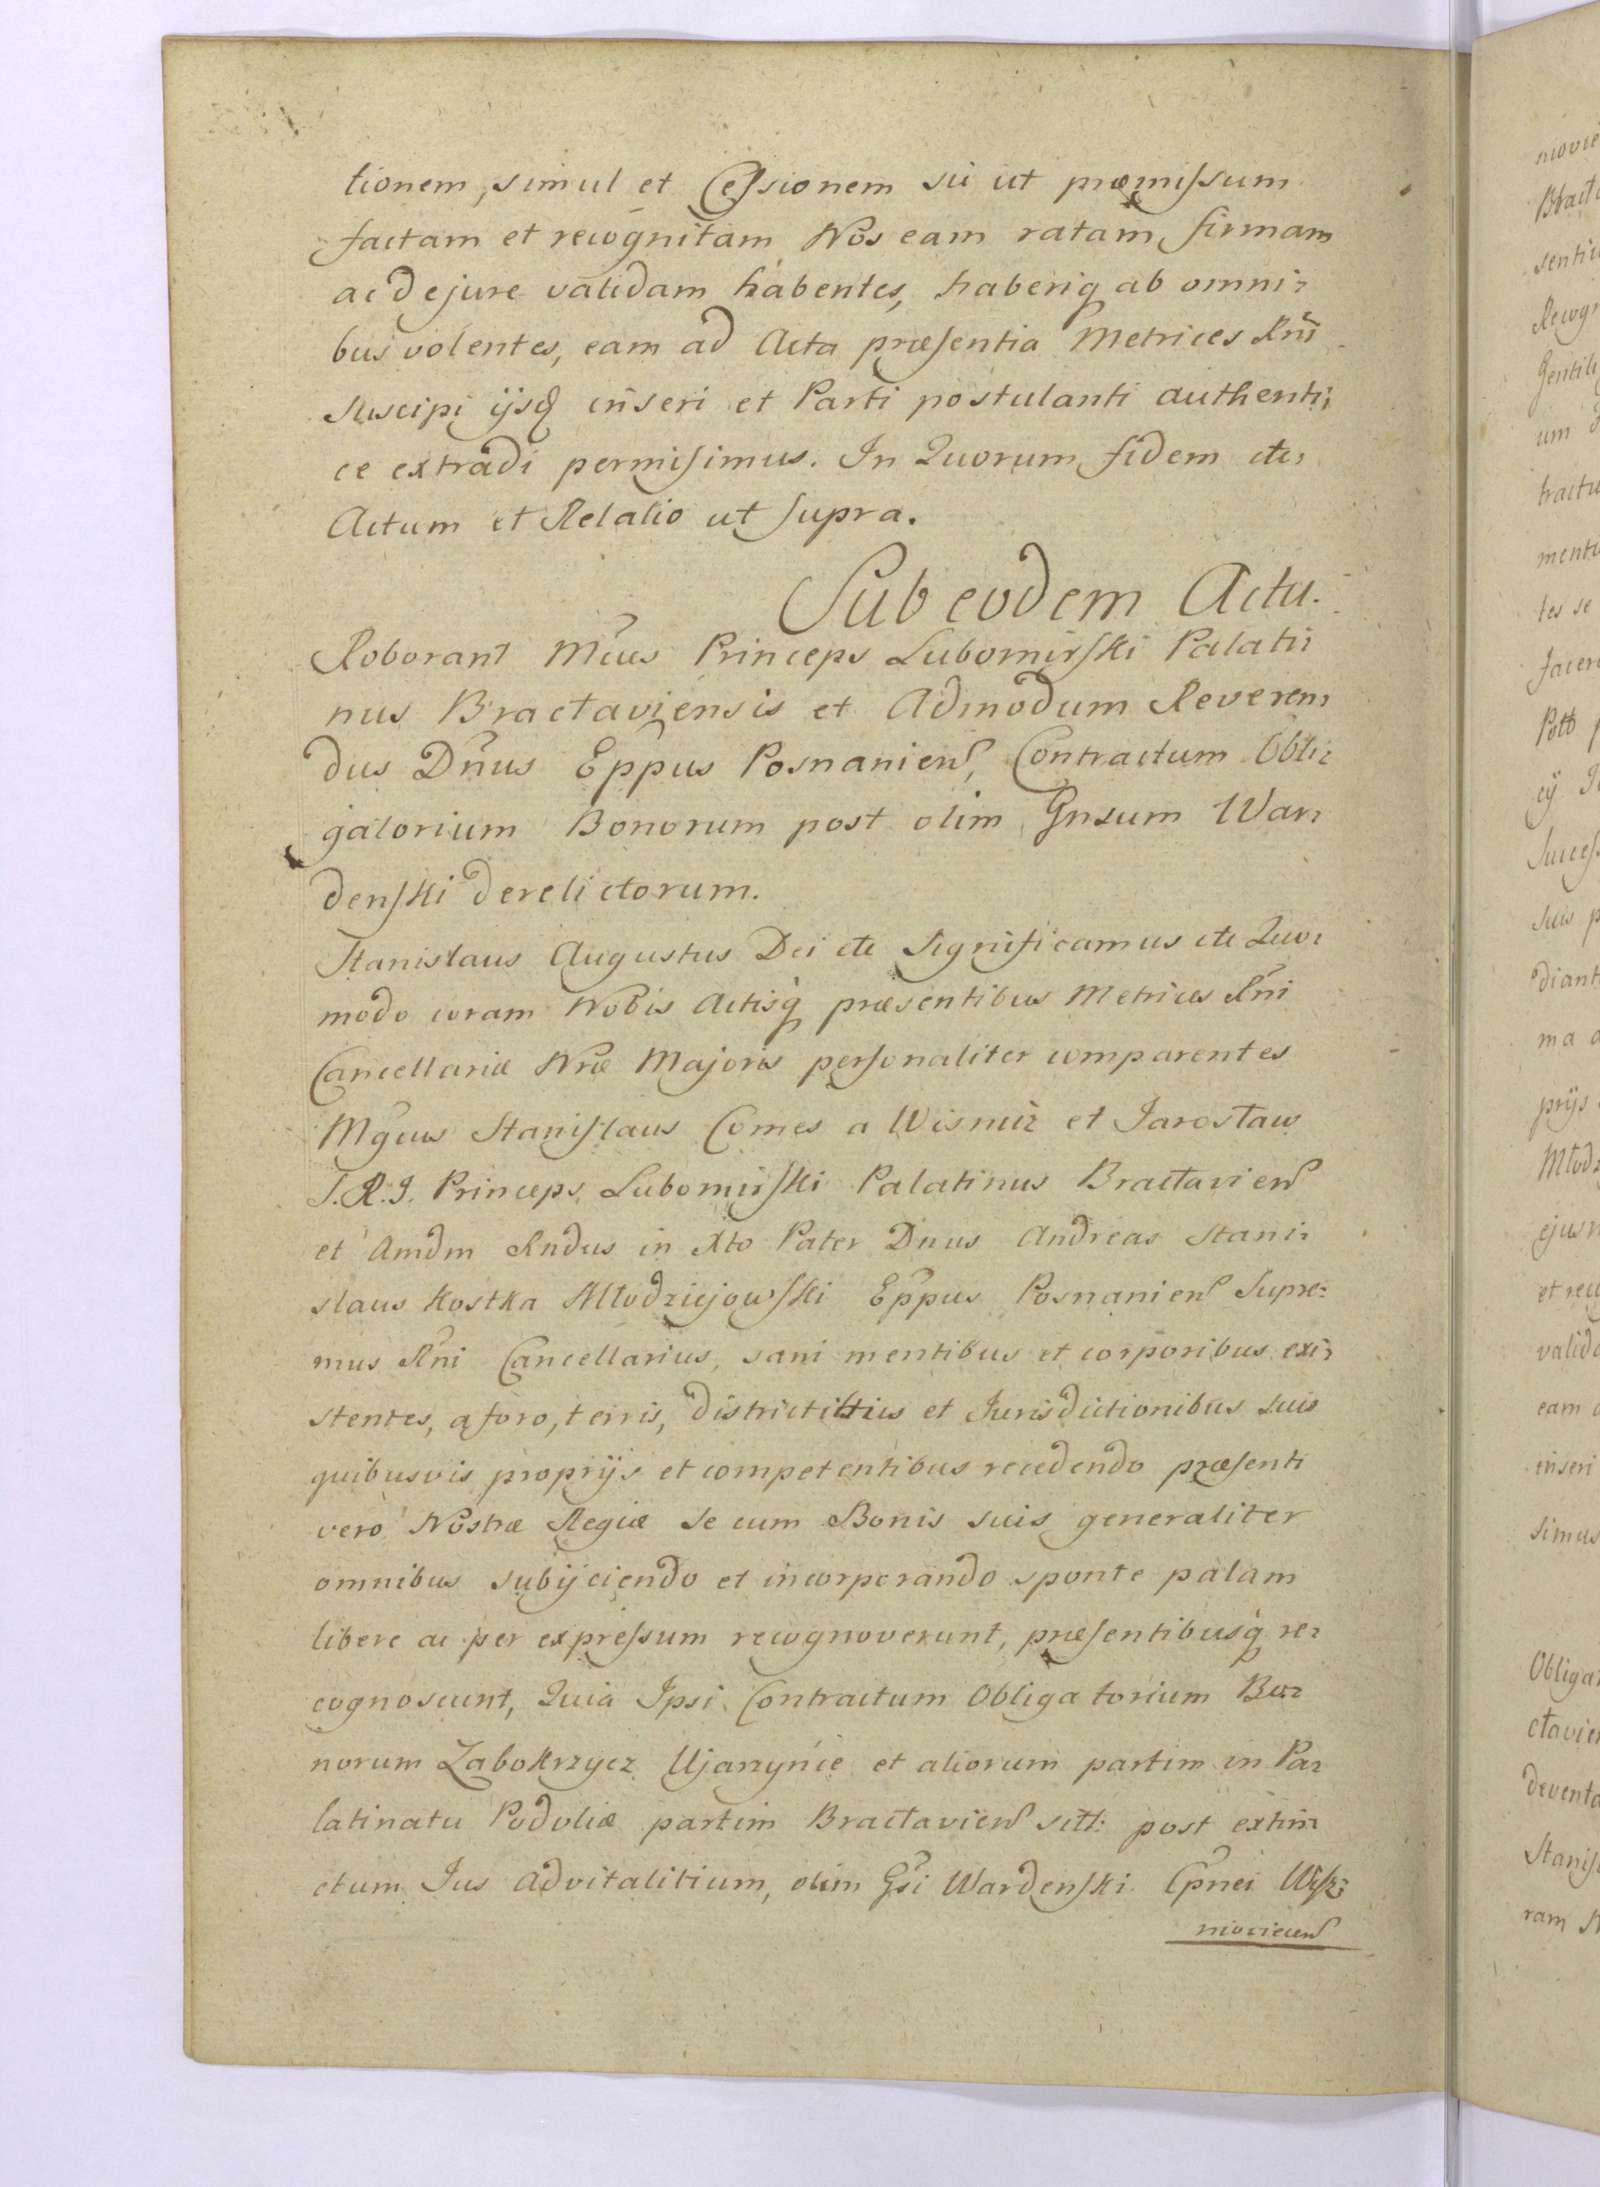 tionem, simul et Cessionem sic ut præmissum
factam et recognitam Nos eam ratam, firmam
ac de jure validam habentes, haberiq ab omni-
bus volentes, eam ad Acta præsentia Metrices Rni
suscipi ijsq inseri et Parti postulanti authenti-
ce extradi permisimus. In Quorum fidem etc.
Actum et Relatio ut supra.
Sub eodem Actu.
Roborant Mcus Princeps Lubomirski Palati-
nus Bractaviensis et Admodum Reveren-
dus Dnus Eppus Posnaniens, Contractum Obli-
gatorium Bonorum post olim Gnsum War-
denski derelictorum.
Stanislaus Augustus Dei etc Significamus etc Quo-
modo coram Nobis Actisq præsentibus Metrices Rni
Cancellariæ Nræ Majoris personaliter comparentes
Mgcus Stanislaus Comes a Wisnicz et Jarosław
S. R. I. Princeps Lubomirski Palatinus Bractaviens
et Amdm Rndus in Xto Pater Dnus Andreas Stani-
slaus Kostka Młodziejowski Eppus Posnaniens Supre-
mus Rni Cancellarius, sani mentibus et corporibus exi-
stentes, a foro, terris, districtibus et Jurisdictionibus suis
quibusvis proprijs et competentibus recedendo præsenti
vero Nostræ Regiæ se cum Bonis suis generaliter
omnibus subijciendo et incorporando sponte palam
libere ac per expressum recognoverunt, præsentibusq re-
cognoscunt, Quia Ipsi Contractum Obligatorium Bo-
norum Zabokrzycz Ujarzynie et aliorum partim in Pa-
latinatu Podoliæ partim Bractaviens sitt: post extin-
ctum Jus advitalitium, olim Gsi Wardenski
niovicens